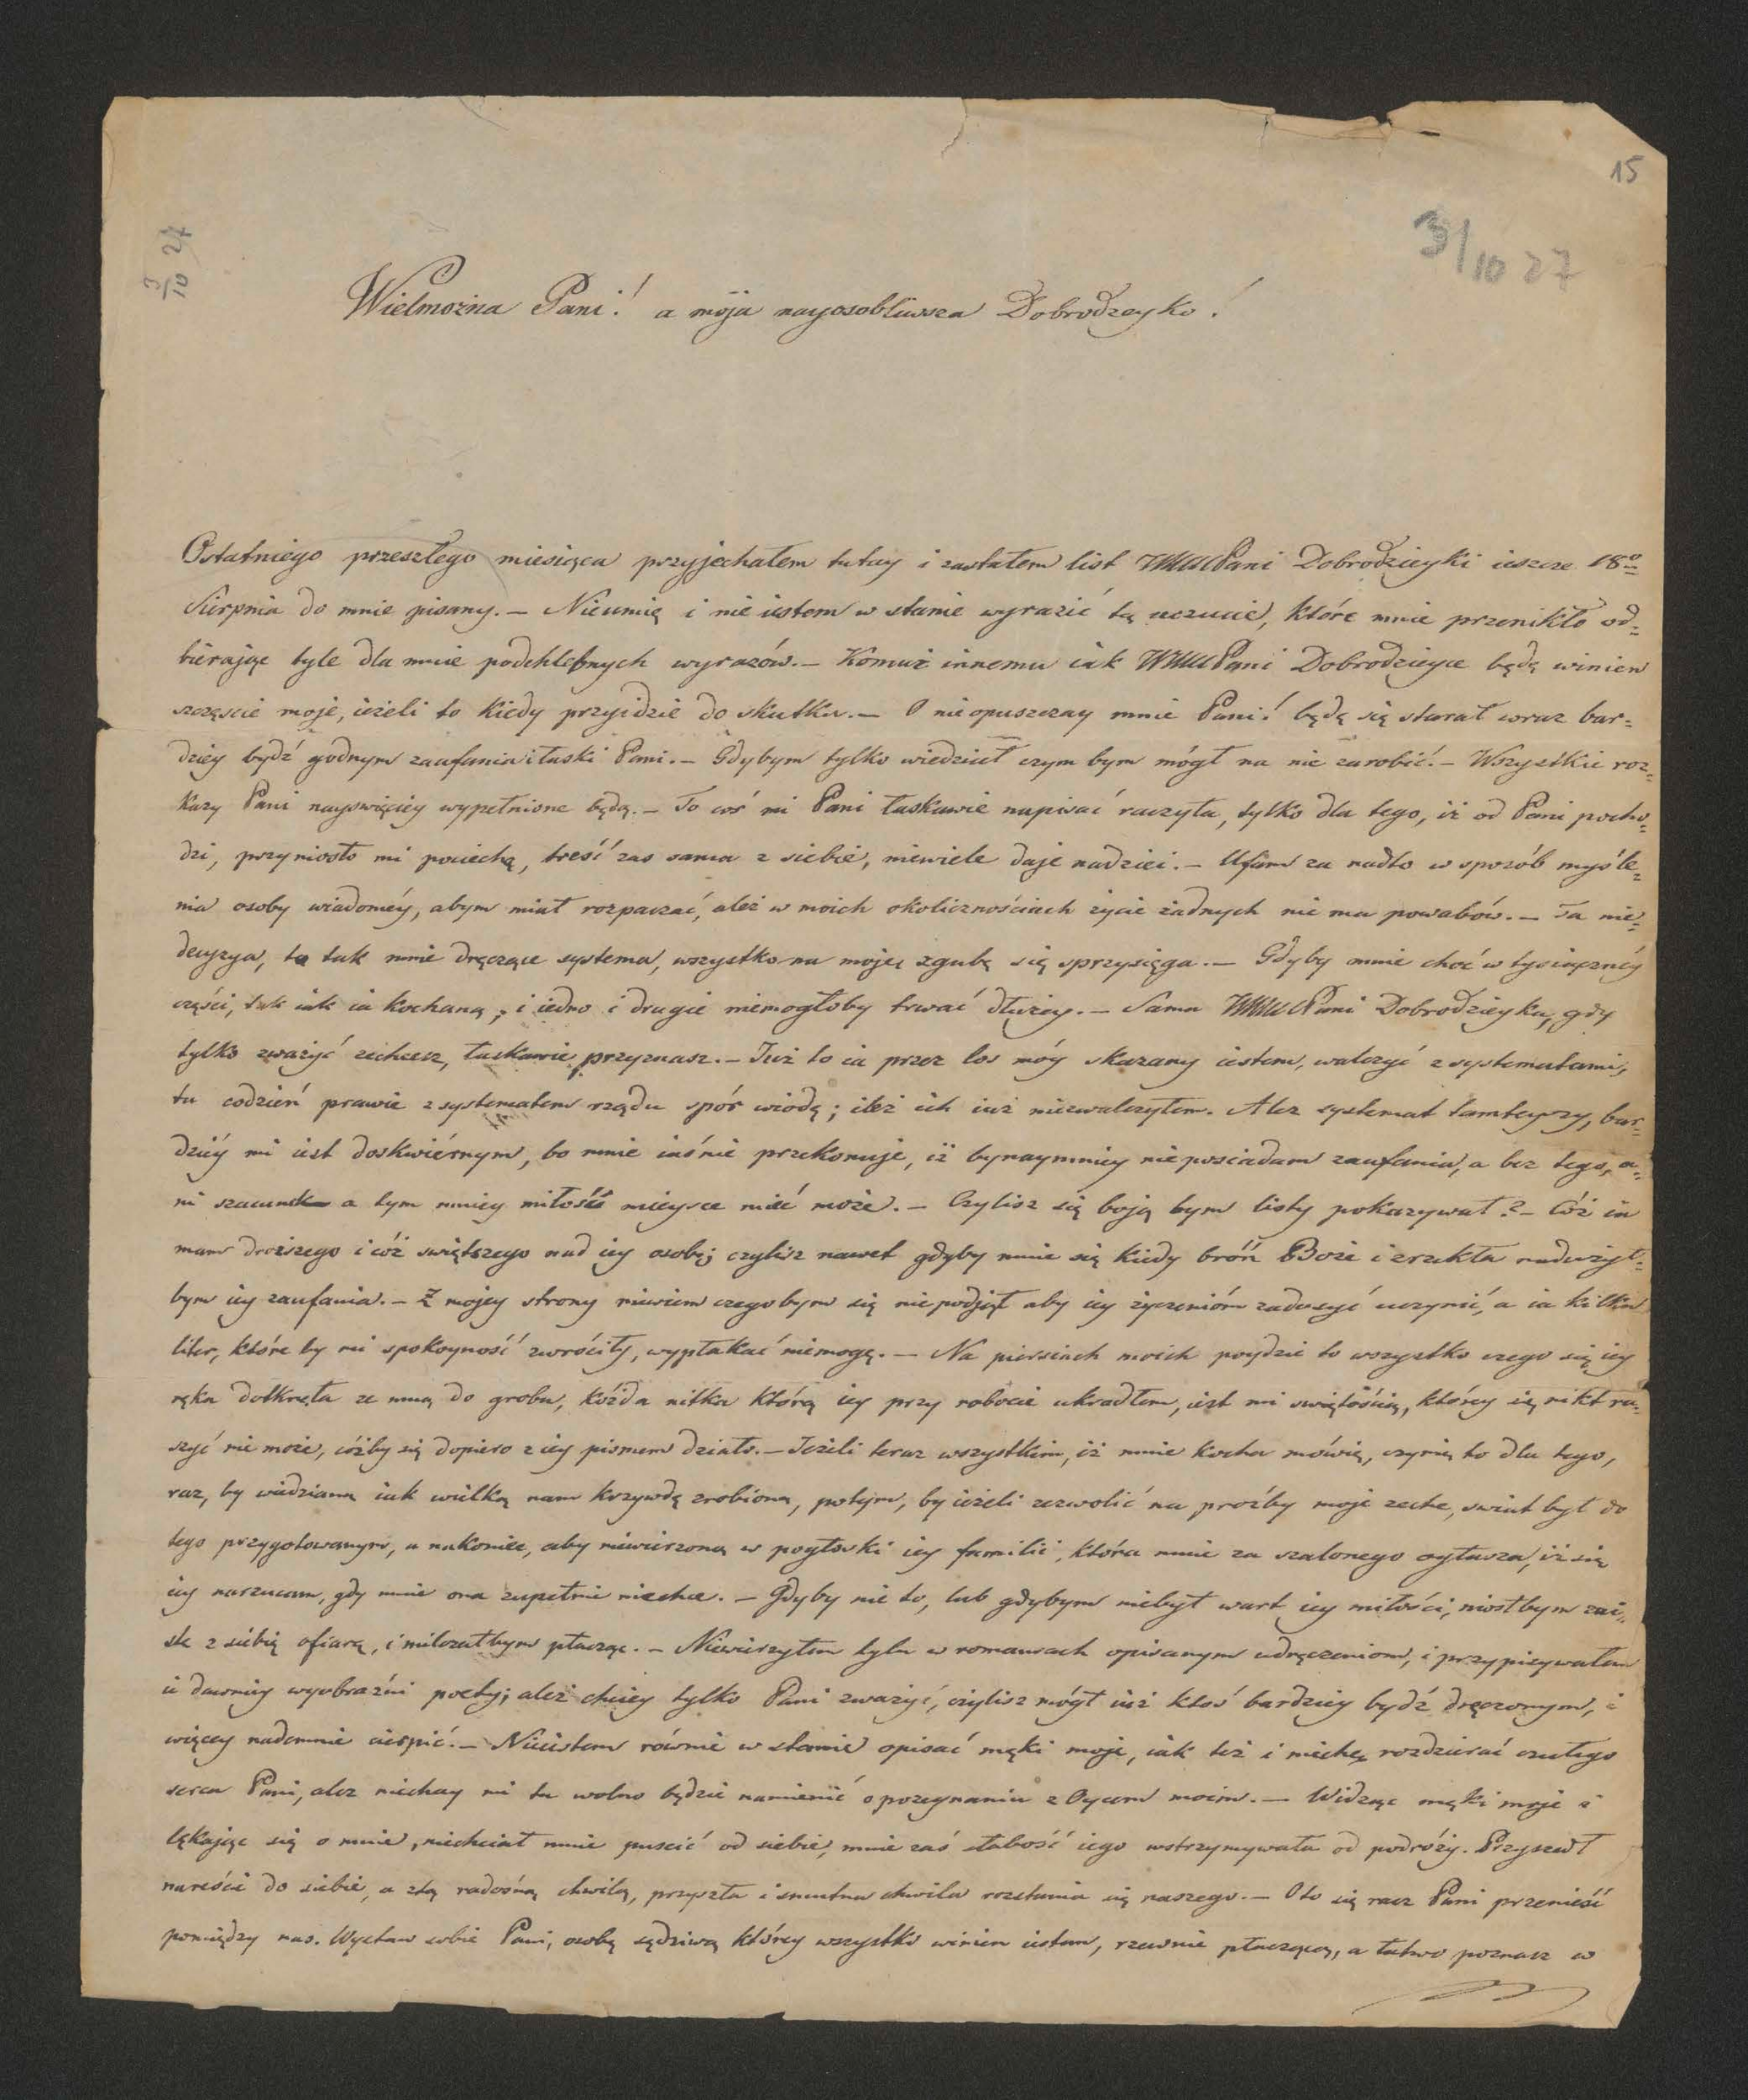 15
3/10 27
3/10 27
Wielmożna Pani! a moja nayosobliwsza Dobrodzeyko!
Ostatniego przeszłego miesiąca przyjechałem tutay i zastałem list WMMPani Dobrodzieyki ieszcze 18º
Sierpnia do mnie pisany. — Nieumię i nie iestem w stanie wyrazić tę uczucie, które mnie przenikło od=
bierając tyle dla mnie podchlebnych wyrazów. — Komuż innemu iak WMMPani Dobrodzieyce będę winien
szczęscie moje, ieżeli to kiedy przyidzie do skutku. — O nieopuszczay mnie Pani! będę się starał coraz bar=
dziey bydź godnym zaufania i łaski Pani. — Gdybym tylko wiedział czym bym mógł na nie zarobić. — Wszystkie roz=
kazy Pani nayswięciey wypełnione będą. — To coś mi Pani łaskawie napisać raczyła, tylko dla tego, iż od Pani pocho=
dzi, przyniosło mi pociechę, treść zas sama z siebie, niewiele daje nadziei. — Ufam za nadto w sposób myśle=
nia osoby wiadoméy, abym miał rozpaczać, ależ w moich okolicznościach życie żadnych nie ma powabów. — Ta nie=
decyzya, ta tak mnie dręczące systema, wszystko na moję zgubę się sprzysięga. — Gdyby mnie choć w tysiącznéy
części, tak iak ia kochaną, i iedno i drugie niemogłoby trwać dłużey. — Sama WMMPani Dobrodzieyka, gdy
tylko zważyć zechcesz, łaskawie przyznasz. — Już to ia przez los móy skazany iestem, walczyć z systematami,
tu codzień prawie z systematem rządu spór wiodę; ileż ich iuż niezwalczyłem. Alez systemat tamteyszy, bar=
dziéy mi iest doskwiérnym, bo mnie iaśnie przekonuje, iż bynaymniey nieposiadam zaufania, a bez tego, a=
ni szacunek a tym mniey miłość mieysce mieć może. — Czylisz się boją bym listy pokazywał? — Cóż ia
mam droższego i cóż swiętszego nad iey osobę; czylisz nawet gdyby mnie się kiedy broń Boże i zrzekła nadużył=
bym iey zaufania. — Z mojey strony niewiem czegobym się niepodjął aby iey życzenióm zadosyć uczynić, a ia kilku
liter, które by mi spokoyność zwróciły, wypłakać niemogę. — Na piersiach moich poydzie to wszystko czego się iey
ręka dotknęła ze mną do grobu, każda nitka którą iey przy robocie ukradłem, iest mi swiętością, którey się nikt ru=
szyć nie może, cóżby się dopiero z iey pismem działo. — Jeżeli teraz wszystkim, iż mnie kocha mówię, czynię to dla tego,
raz, by widziano iak wielką nam krzywdę zrobiono, potym, by ieżeli zezwolić na proźby moje zechce, swiat był do
tego przygotowanym, a nakoniec, aby niewierzono w pogłoski iey familii, która mnie za szalonego ogłasza, iż się
iey narzucam, gdy mnie ona zupełnie niechce. — Gdyby nie to, lub gdybym niebył wart iey miłości, niosłbym zai=
ste z siebie ofiarę, i milczałbym płacząc. — Niewierzyłem tylu w romansach opisanym udręczeniom, i przypisywałem
ie dawniey wyobraźni poety; ależ chciey tylko Pani zważyć, czylisz mógł iuż ktoś bardziey bydź dręczonym, i
więcey nademnie cierpić. — Nieiestem równie w stanie opisać męki moje, iak też i niechcę rozdzierać czułego
serca Pani, alez niechay mi tu wolno będzie namienić o pozegnaniu z Oycem moim. — Widząc męki moje i
lękając się o mnie, niechciał mnie puscić od siebie, mnie zaś słabość iego wstrzymywała od podróży. Przyszedł
nareście do siebie, a z tą radosną chwilą, przyszła i smutna chwila rozstania się naszego. — Oto się racz Pani przenieść
pomiędzy nas. Wystaw sobie Pani, osobę sędziwą którey wszystko winien iestem, rzewnie płaczącą, a łatwo poznasz w